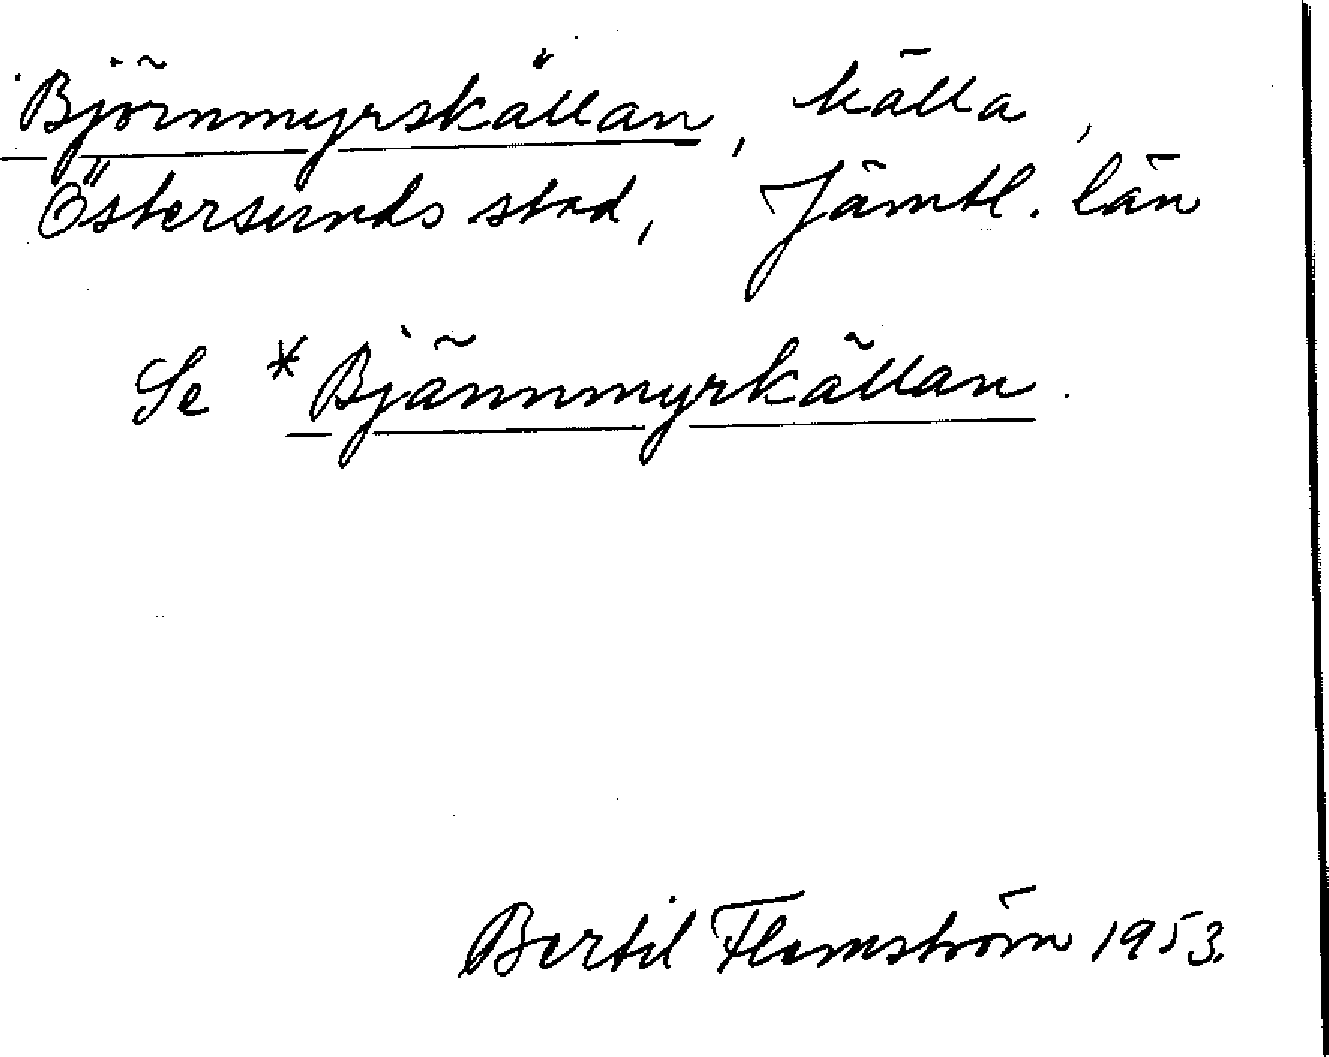 Björnmyrskällan, källa,
Östersunds stad, Jämtl. län
Se *Bjännmyrkällan.
Bertil Flemström 1953.